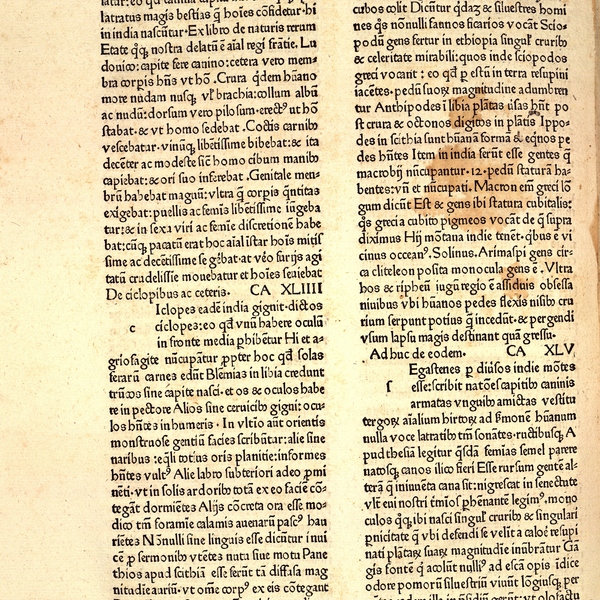 latratus magis bestias q̃ hoīes cōfidetur·hi
in india nascūtur·Ex libro de naturis rerum
Etate q̃q̃ nostra delatū ē aīal regi frātie. Lu
douico: capite fere canino: cetera vero mem-
bra corpis hñs vt hō. Crura q̄dem hūano
more nudam nusq̃ vl' brachia: collum albū
ac nudū: dorsum vero pilosum· erectꝰ ut hō
stabat· & vt homo sedebat. Coctis carnibꝰ
vescebatur· vinūq̃ libētissime bibebat: & ita
decēter ac modeste sic̄ homo cibum manibꝰ
capiebat: & ori suo inserebat. Genitale mem-
brū habebat magnū: vltra q̃ corpis q̄ntitas
exigebat: puellis ac femīs libētissime iūgeba
tur: & in sexu viri ac femīe discretionē habe
bat: cūq̃ pacatū erat hoc aīal īstar hoīs mitis
sime ac decētissime se gebat· at vēo furijs agi
tatū crudelissīe mouebatur et hoīes seuiebat
De ciclopibus ac ceteris. CA XLIIII
Iclopes eadē india gignit· dictos
c ciclopes: eo q̄d vnū habere oculū
in fronte media phibētur Hi et a-
griofagite nūcupātur ꝓpter hoc q̄d solas
ferarū carnes edūt Blēmias in libia credunt
trūcos sine capite nasci· et os & oculos habe
re in pectore Alios sine ceruicibꝰ gigni: ocu-
los hñtes in humeris. In vltīo aūt orientis
monstruose gentiū facies scribūtur: alie sine
naribus: eq̄li totius oris planitie: informes
hñtes vultꝰ Alie labro subteriori adeo ꝓmi
nēti· vt in solis ardoribꝰ totā ex eo faciē cō-
tegāt dormiētes Alijs cōcreta ora esse· mo-
dico tm̄ foramīe calamis auenarū pascꝰ hau
riētes Nōnulli sine linguis esse dicūtur inui
cē ꝓ sermonibꝰ vtētes nutu siue motu Pane
thios apud scithiā esse ferūt tā diffusa mag
nitudīe auriū· vt om̄e corpꝰ ex eis cōtegant
cubos colit Dicūtur q̄daȝ & siluestres homi
nes q̄s nōnulli faunos ficarios vocāt Scio-
podū gens fertur in ethiopia singul' cruribꝰ
& celeritate mirabili: quos inde sciopodes
greci vocant: eo q̄d ꝑ estū in terra resupini
iacētes· pedū suoȝ magnitudīe adumbren
tur Anthipodes ī libia plātas ūsas hñt po
st crura & octonos digitos in plātis Ippo-
des in scithia sunt hūanā formā & eq̄nos pe
des hñtes Item in india ferūt esse gentes q̄
macrobij nūcupantur· 12· pedū staturā ha-
bentes: vñ et nūcupati. Macron em̄ greci lō
gum dicūt Est & gens ibi statura cubitalis:
q̄s greci a cubito pigmeos vocāt de q̄ supra
diximus Hij mōtana indie tenēt· q̄bus ē vi
cinus oceanꝰ. Solinus. Arimaspi gens cir-
ca cliteleon posita monocula gens ē. Vltra
hos & ripheū iugū regio ē assiduis obsessa
niuibus vbi hūanos pedes flexis nisibꝰ cru
rium serpunt potius q̃ incedūt· & pergendi
vsum lapsu magis destinant quā gressu.
Ad huc de eodem. CA XLV
Egastenes ꝑ diūsos indie mōtes
esse: scribit natōes capitibꝰ caninis
armatas vnguibꝰ amictas vestitu
tergoȝ aīalium hirtoȝ ad s̄monē hūanum
nulla voce latratibꝰ tm̄ sonātes· ructibusq̃ A
pud thesiā legitur q̄sdā femīas semel parere
natosq̃ canos ilico fieri Esse rursum gentē al-
terā q̄ iniuuēta cana sit: nigrescat in senectute
vltra eui nostri tm̄īos ꝑhēnantē legimꝰ· mono
culos q̄q̃ ibi nasci singul' cruribꝰ & singulari
ꝑnicitate q̄ vbi defendi se velīt a calore resupi
nati plātaȝ suaȝ magnitudīe inūbrātur Gā
gis fontē q̄ acolūt nullꝰ ad escā opis īdice
odore pomorū siluestriū viuūt lōgiusq̃ ꝑer